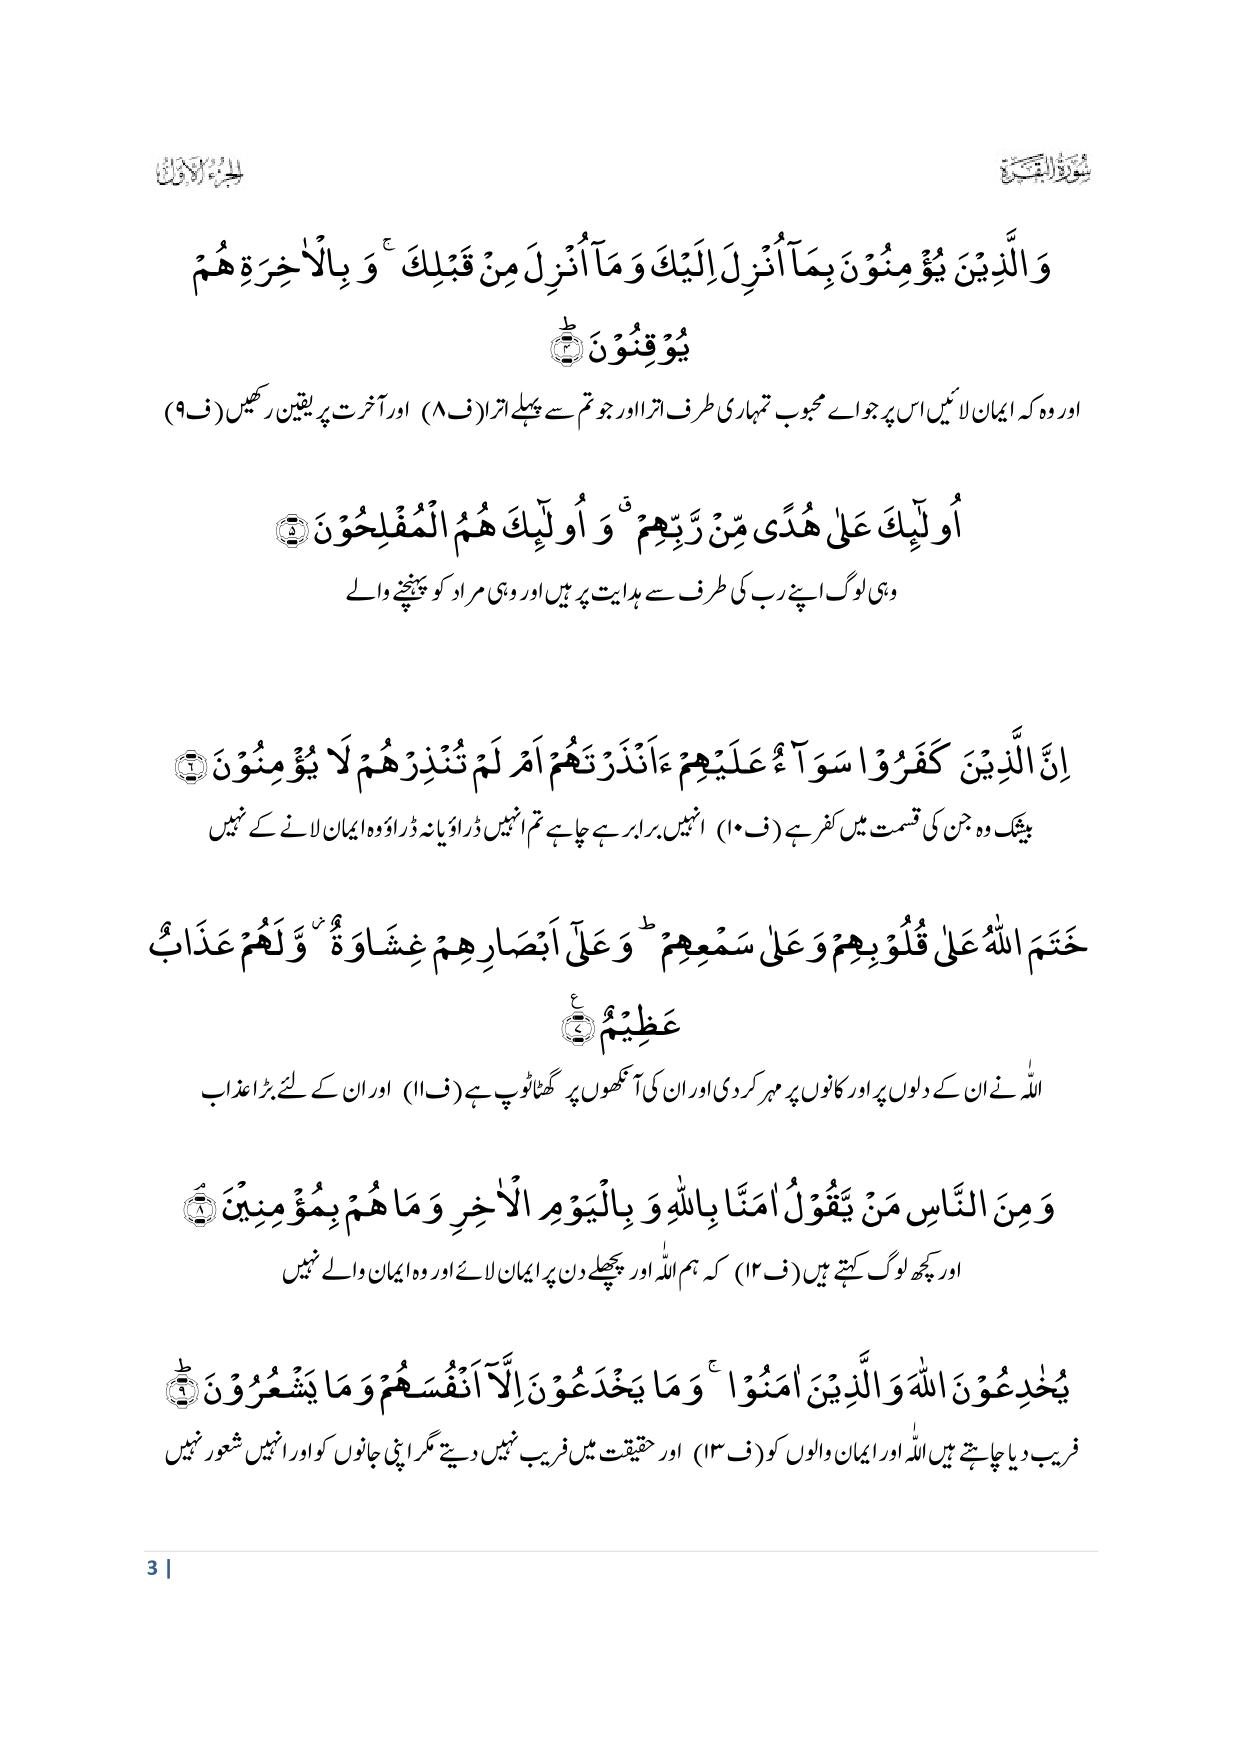 سُوْرَةُ الْبَقَرَة
الجزء الاول
وَ الَّذِیْنَ یُؤْمِنُوْنَ بِمَاۤ اُنْزِلَ اِلَیْكَ وَ مَاۤ اُنْزِلَ مِنْ قَبْلِكَ ۚ وَ بِالْاٰخِرَةِ هُمْ
یُوْقِنُوْنَ ﴿ؕ۴﴾
اور وہ کہ ایمان لائیں اس پر جو اے محبوب تمہاری طرف اترا اور جو تم سے پہلے اترا (ف۸) اور آخرت پر یقین رکھیں (ف۹)
اُولٰٓىِٕكَ عَلٰى هُدًى مِّنْ رَّبِّهِمْ ۗ وَ اُولٰٓىِٕكَ هُمُ الْمُفْلِحُوْنَ ﴿۵﴾
وہی لوگ اپنے رب کی طرف سے ہدایت پر ہیں اور وہی مراد کو پہنچنے والے
اِنَّ الَّذِیْنَ كَفَرُوْا سَوَآءٌ عَلَیْهِمْ ءَاَنْذَرْتَهُمْ اَمْ لَمْ تُنْذِرْهُمْ لَا یُؤْمِنُوْنَ ﴿۶﴾
بیشک وہ جن کی قسمت میں کفر ہے (ف۱۰) انہیں برابر ہے چاہے تم انہیں ڈراؤ یا نہ ڈراؤ وہ ایمان لانے کے نہیں
خَتَمَ اللّٰهُ عَلٰى قُلُوْبِهِمْ وَ عَلٰى سَمْعِهِمْ ؕ وَ عَلٰۤى اَبْصَارِهِمْ غِشَاوَةٌ ۫ وَّ لَهُمْ عَذَابٌ
عَظِیْمٌ ﴿۷﴾ۧ
اللّٰہ نے ان کے دلوں پر اور کانوں پر مہر کردی اور ان کی آنکھوں پر گھٹا ٹوپ ہے (ف۱۱) اور ان کے لئے بڑا عذاب
وَ مِنَ النَّاسِ مَنْ یَّقُوْلُ اٰمَنَّا بِاللّٰهِ وَ بِالْیَوْمِ الْاٰخِرِ وَ مَا هُمْ بِمُؤْمِنِیْنَ ﴿ۘ۸﴾
اور کچھ لوگ کہتے ہیں (ف۱۲) کہ ہم اللّٰہ اور پچھلے دن پر ایمان لائے اور وہ ایمان والے نہیں
یُخٰدِعُوْنَ اللّٰهَ وَ الَّذِیْنَ اٰمَنُوْا ۚ وَ مَا یَخْدَعُوْنَ اِلَّاۤ اَنْفُسَهُمْ وَ مَا یَشْعُرُوْنَ ﴿ؕ۹﴾
فریب دیا چاہتے ہیں اللّٰہ اور ایمان والوں کو (ف۱۳) اور حقیقت میں فریب نہیں دیتے مگر اپنی جانوں کو اور انہیں شعور نہیں
3 |